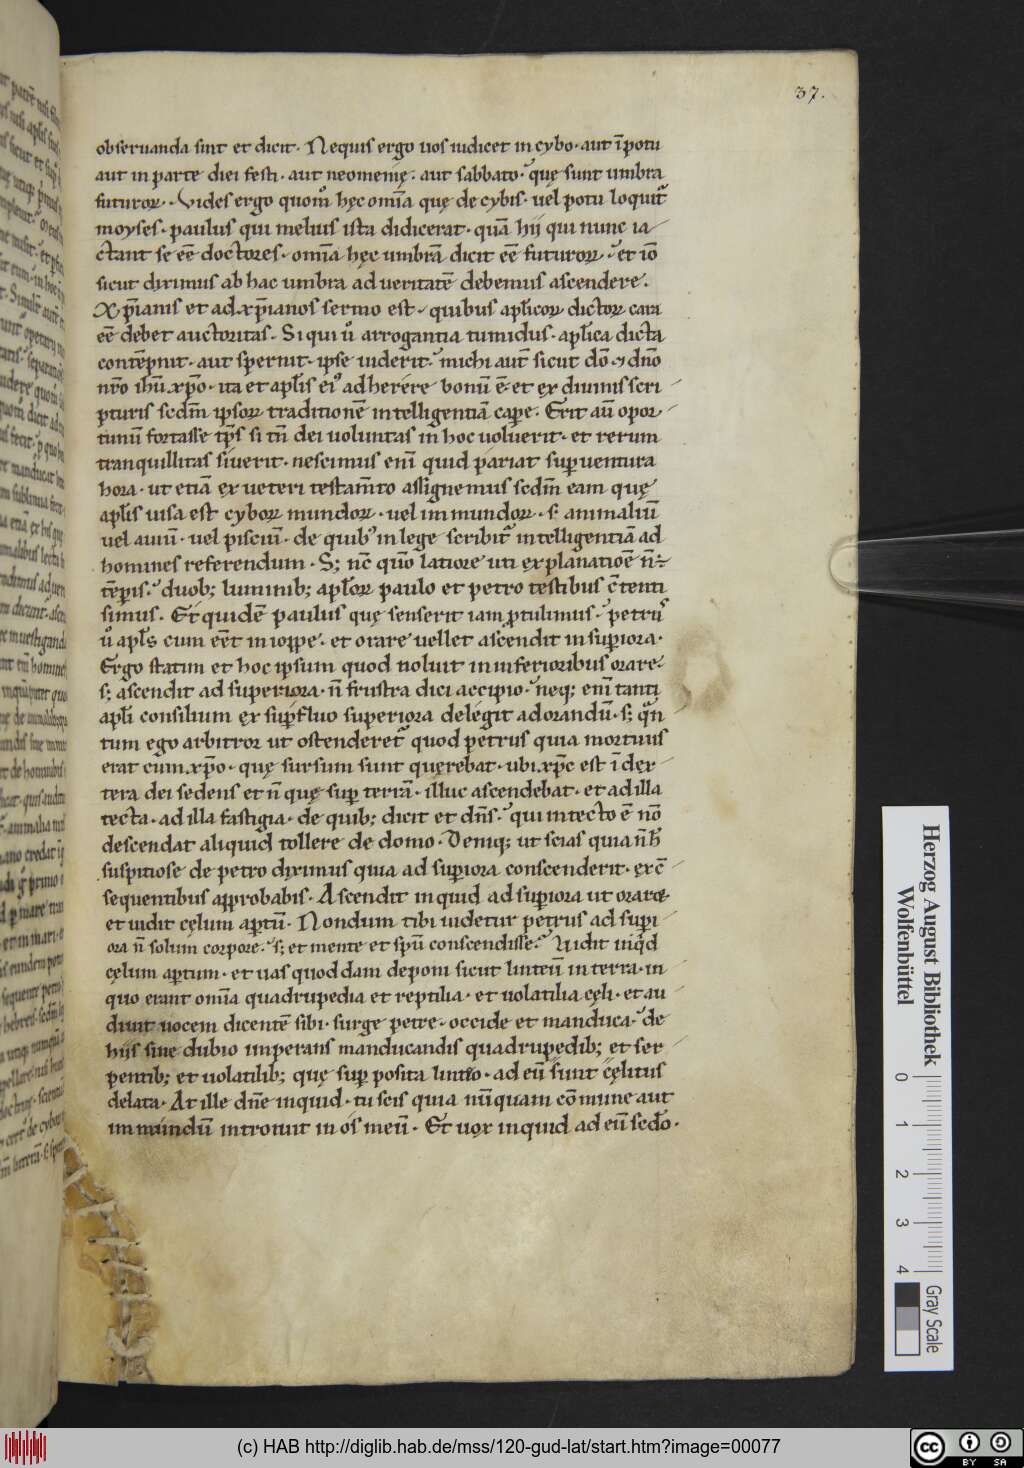 37.
obseruanda sint et dicit. Nequis ergo uos iudicet in cybo. aut ī potu
aut in parte diei festi. aut neomenię. aut sabbato. quę sunt umbra
futuroꝝ. Vides ergo quom̊ hęc omīa quę de cybis. uel potu loquit᷑
moyses. paulus qui melius ista didicerat. quā hii qui nunc ia
ctant se eē doctores. omīa hęc umbrā dicit eē futuroꝝ. et iō
sicut diximus ab hac umbra ad ueritatē debemus ascendere.
Xp̄ianis et ad xp̄ianos sermo est. quibus apl̄icoꝝ dictoꝝ cara
eē debet auctoritas. Si qui ů arrogantia tumidus. apl̄ica dicta
contēpnit. aut spernit. ipse uiderit. michi aut̄ sicut dō ⁊ dn̄o
nr̄o ih̄u xp̄o. ita et apl̄is ei᷒ adherere bonū ē. et ex diuinis scri
pturis scdm̄ ipsoꝝ traditionē intelligentiā caꝑe. Erit aū opor
tunū fortasse tp̄s si tn̄ dei uoluntas in hoc uoluerit. et rerum
tranquillitas siuerit. nescimus enī quid pariat suꝑuentura
hora. ut etiā ex ueteri testam̄to assignemus scdm̄ eam quę
apl̄is uisa est cyboꝝ mundoꝝ. uel immundoꝝ. s. animaliū
uel auiū. uel pisciū. de quib᷒ in lege scribit᷑ intelligentiā ad
homines referendum. S; nc̄ quō latiore uti explanatiōe n̄ ÷
tēꝑis. duob; luminib; apl̄oꝝ paulo et petro testibus c̄tenti
simus. Et quidē paulus quę senserit iam ꝓtulimus. petrus
ů apl̄s cum eēt in ioppe. et orare uellet ascendit in suꝑiora.
Ergo statim et hoc ipsum quod noluit in inferioribus orare.
s; ascendit ad superiora. n̄ frustra dici accipio. neq; enī tanti
apl̄i consilium ex suꝑfluo superiora delegit ad orandū. s; qn̄
tum ego arbitror ut ostenderet᷑ quod petrus quia mortuus
erat cum xp̄o. quę sursum sunt quęrebat. ubi xp̄c est ī dex
tera dei sedens et n̄ quę suꝑ terrā. illuc ascendebat. et ad illa
tecta. ad illa fastigia. de quib; dicit et dn̄s. qui in tecto ē nō
descendat aliquid tollere de domo. Deniq; ut scias quia n̄ h̄
suspitiose de petro diximus quia ad suꝑiora conscenderit. ex c̄
sequentibus approbabis. Ascendit inquid ad suꝑiora ut oraret
et uidit cęlum aꝑtū. Nondum tibi uidetur petrus ad suꝑi
ora n̄ solum corpore. s; et mente et sp̄u conscendisse. Uidit inqd
cęlum aꝑtum. et uas quoddam deponi sicut linteū in terra. in
quo erant omīa quadrupedia et reptilia. et uolatilia cęli. et au
diuit uocem dicentē sibi. surge petre. occide et manduca. de
hiis sine dubio imperans manducandis quadrupedib; et ser
pentib; et uolatilib; quę suꝑ posita linteo. ad eū sunt cęlitus
delata. At ille dn̄e inquid. tu scis quia nūquam cōmune aut
immundū introiuit in os meū. Et uox inquid ad eū sedo.
Herzog August Bibliothek
Wolfenbüttel
0 1 2 3 4
Gray Scale
(c) HAB http://diglib.hab.de/mss/120-gud-lat/start.htm?image=00077
cc BY SA